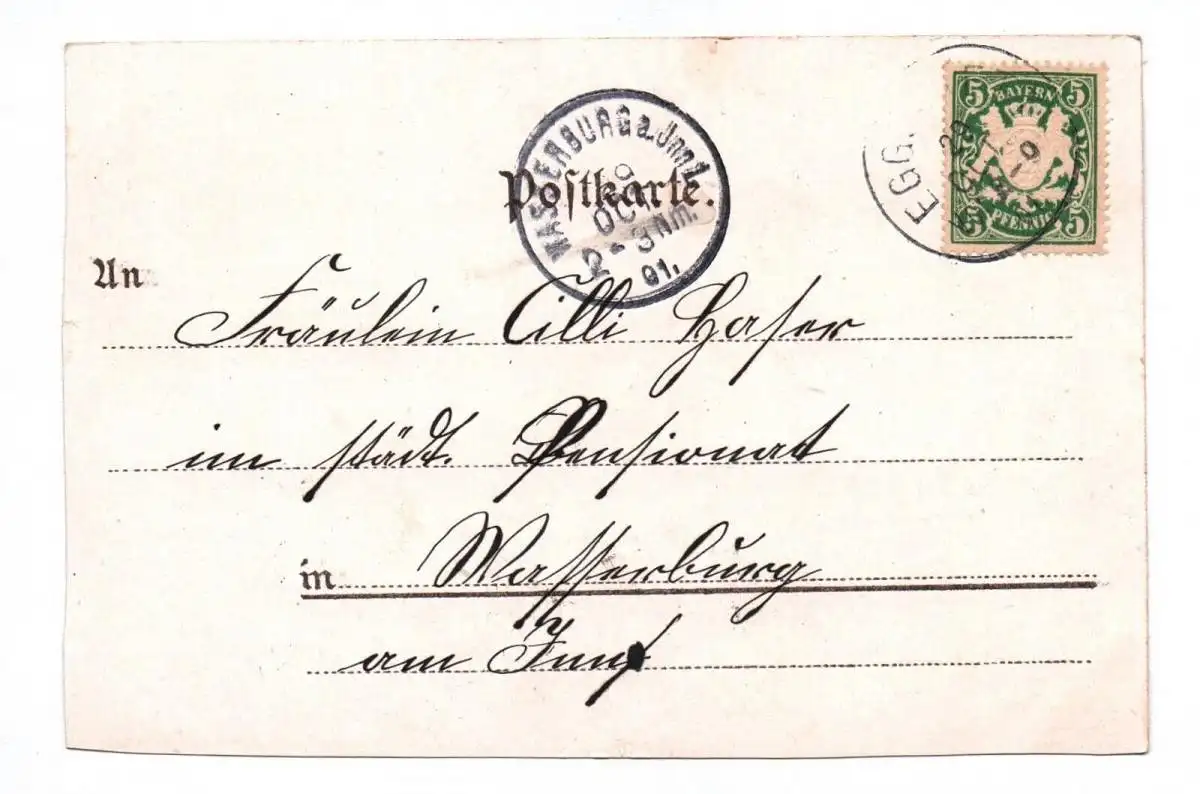 5 BAYERN 5
5 PFENNIG 5
EGG
WASSERBURG a.Inn 1.
OCT
2-3 Nm.
01.
Postkarte.
An
Fräulein Cilli Haser
im städt. Pensionat
in Wasserburg
am Inn